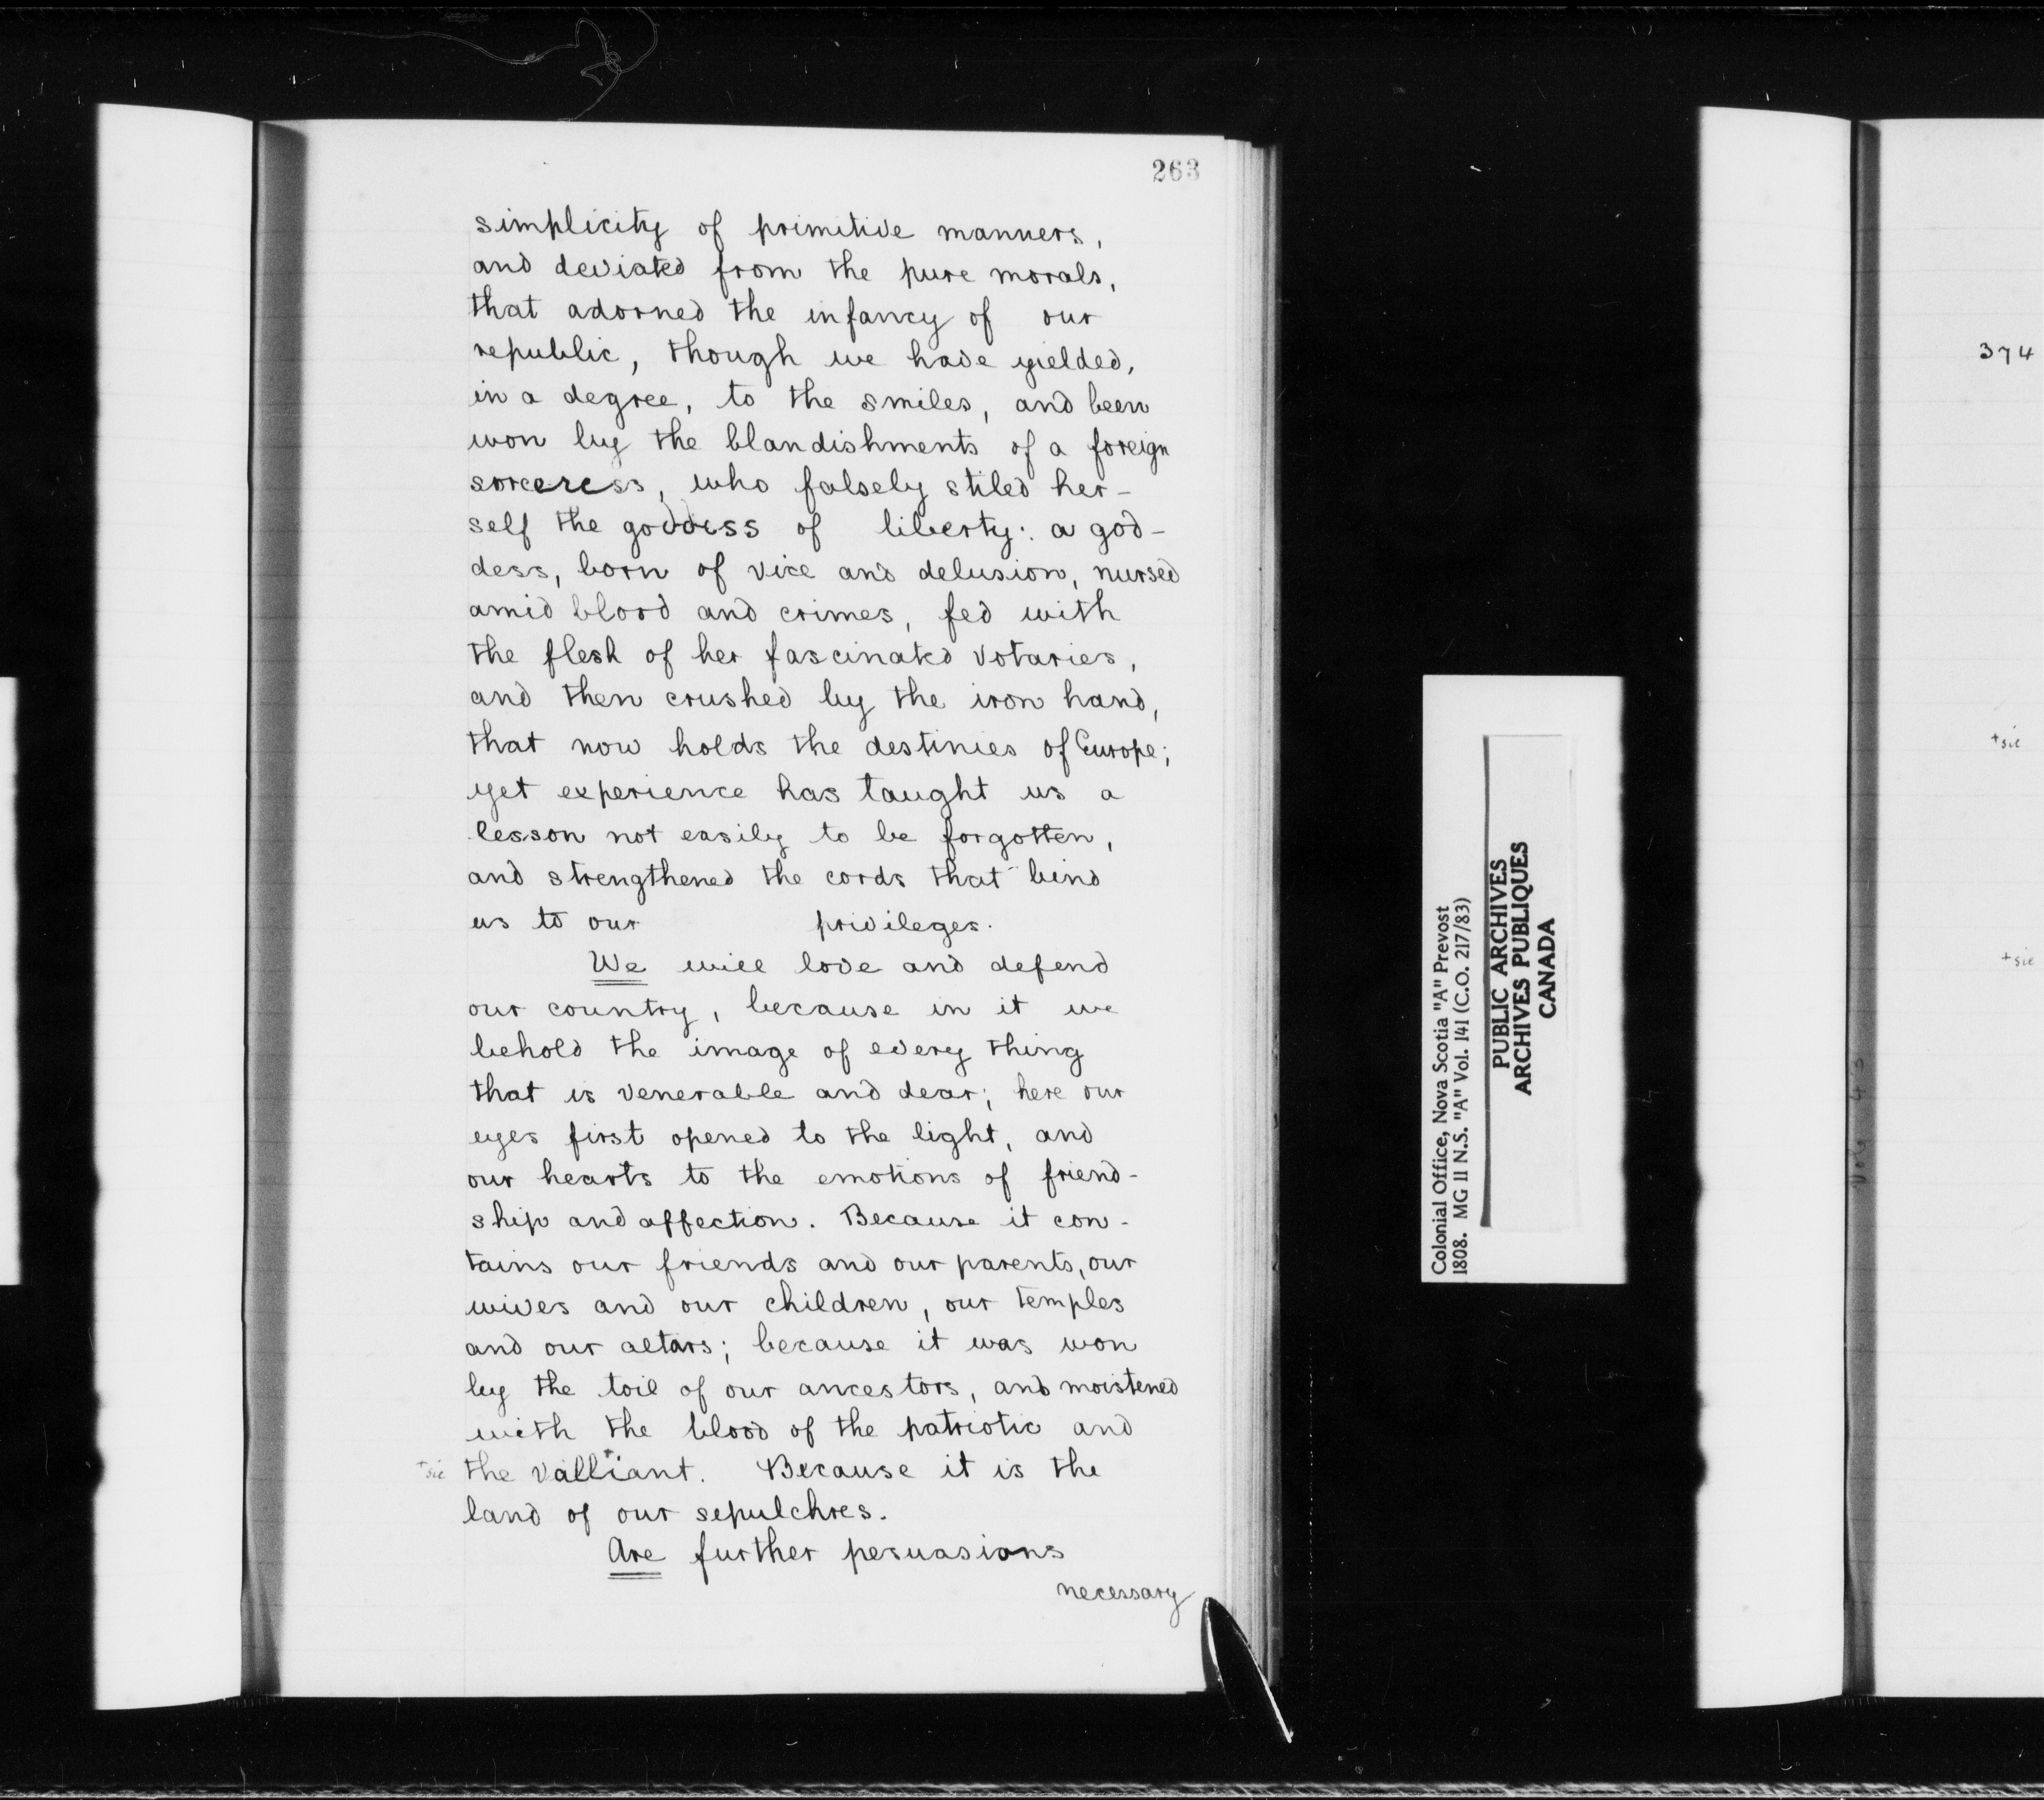 263
simplicity of primitive manners,
and deviated from the pure morals,
that adorned the infancy of our
republic, though we have yielded,
in a degree, to the smiles, and been
won by the blandishments of a foreign
sorceress, who falsely stiled her-
self the goddess of liberty: a god-
dess, born of vice and delusion, nursed
amid blood and crimes, fed with
the flesh of her fascinated votaries,
and then crushed by the iron hand,
that now holds the destinies of Europe;
yet experience has taught us a
lesson not easily to be forgotten,
and strengthened the cords that bind
us to our privileges.
We will love and defend
our country, because in it we
behold the image of every thing
that is venerable and dear; here our
eyes first opened to the light, and
our hearts to the emotions of friend-
ship and affection. Because it con-
tains our friends and our parents, our
wives and our children, our temples
and our altars; because it was won
by the toil of our ancestors, and moistened
with the blood of the patriotic and
+sic the valliant.+ Because it is the
land of our sepulchres.
Are further persuasions
necessary
Colonial Office, Nova Scotia "A" Prevost
1808. MG II N.S. "A" Vol. 141 (C.O. 217/83)
PUBLIC ARCHIVES
ARCHIVES PUBLIQUES
CANADA
374
+sic
+sic